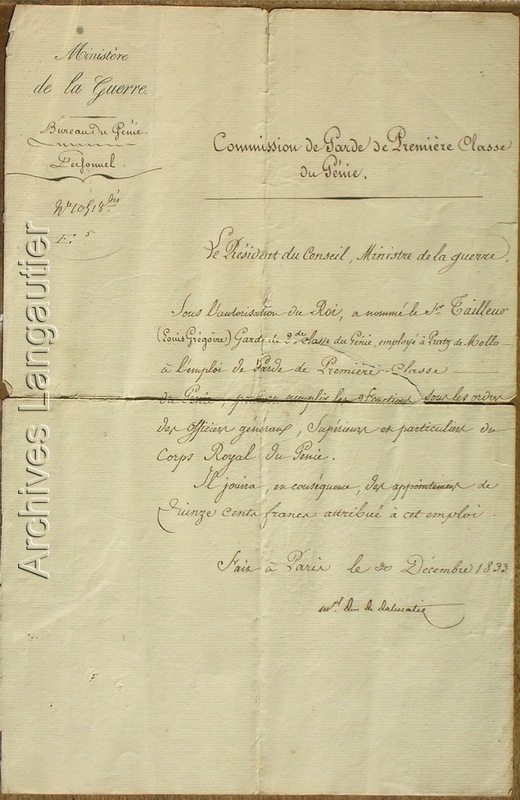 Ministère
de la Guerre.
Bureau du Génie.
Personnel.
Commission de Garde de Première Classe
du Génie.
Le Président du Conseil, Ministre de la guerre.
Sous l'autorisation du Roi, a nommé le Sr. Tailleur
(Louis Grégoire) Garde de 2de classe du Génie, employé à Pratz de Mollo
à l'emploi de Garde de Première Classe
du Génie, pour en remplir les Fonctions sous les ordres
des Officiers généraux, Supérieurs et particuliers du
Corps Royal du Génie.
Il jouira, en conséquence, des appointemens de
Quinze cents francs attribué à cet emploi.
Fait à Paris le 30 Décembre 1833
Mal. Duc de dalmatie
Archives Langautier